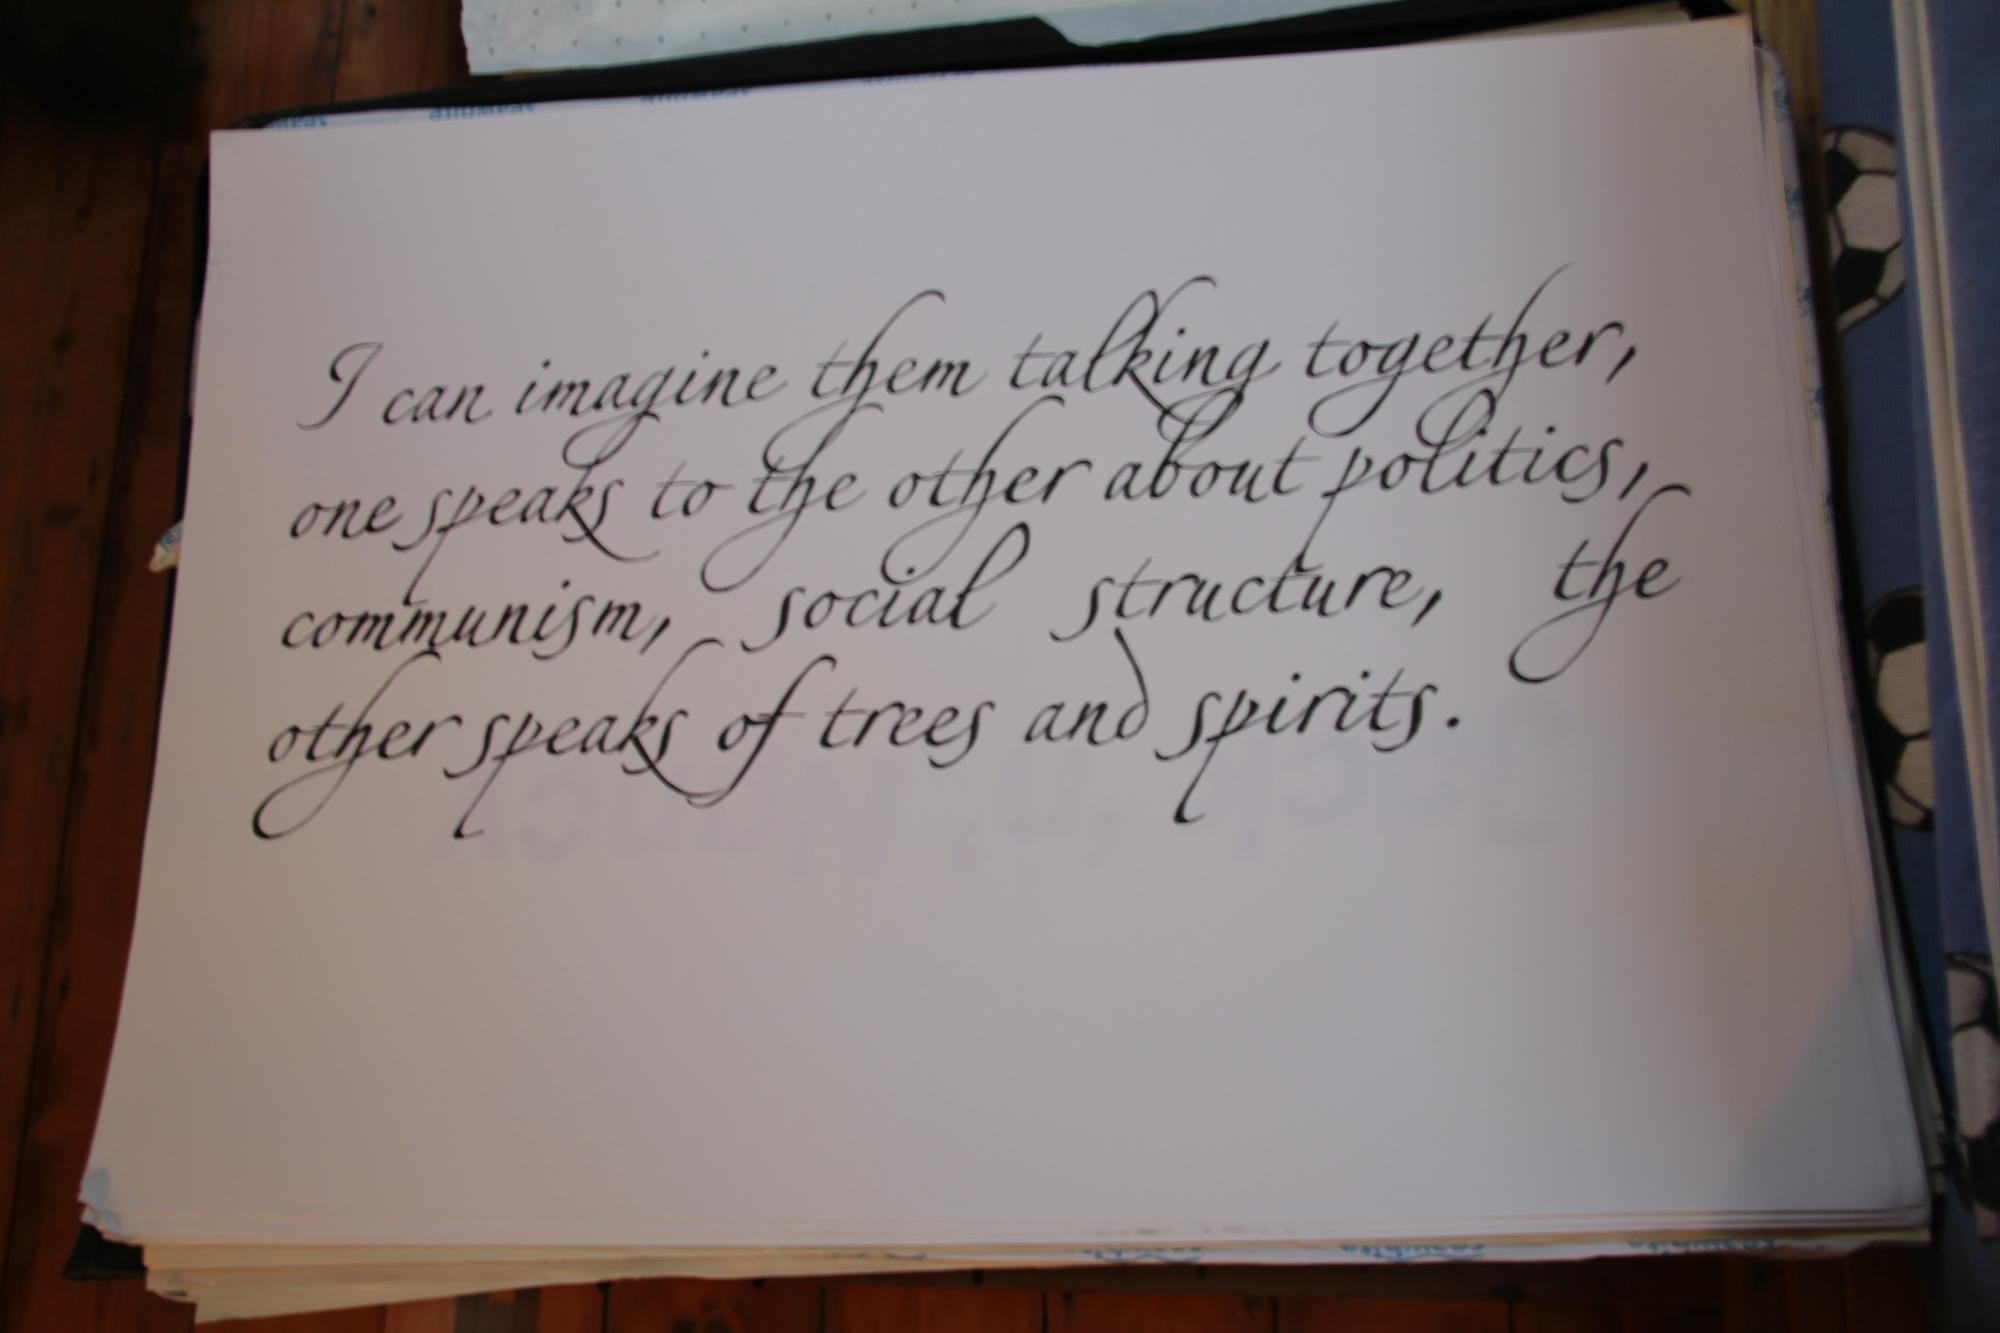 I can imagine them talking together,
one speaks to the other about politics,
communism, social structure, the
other speaks of trees and spirits.